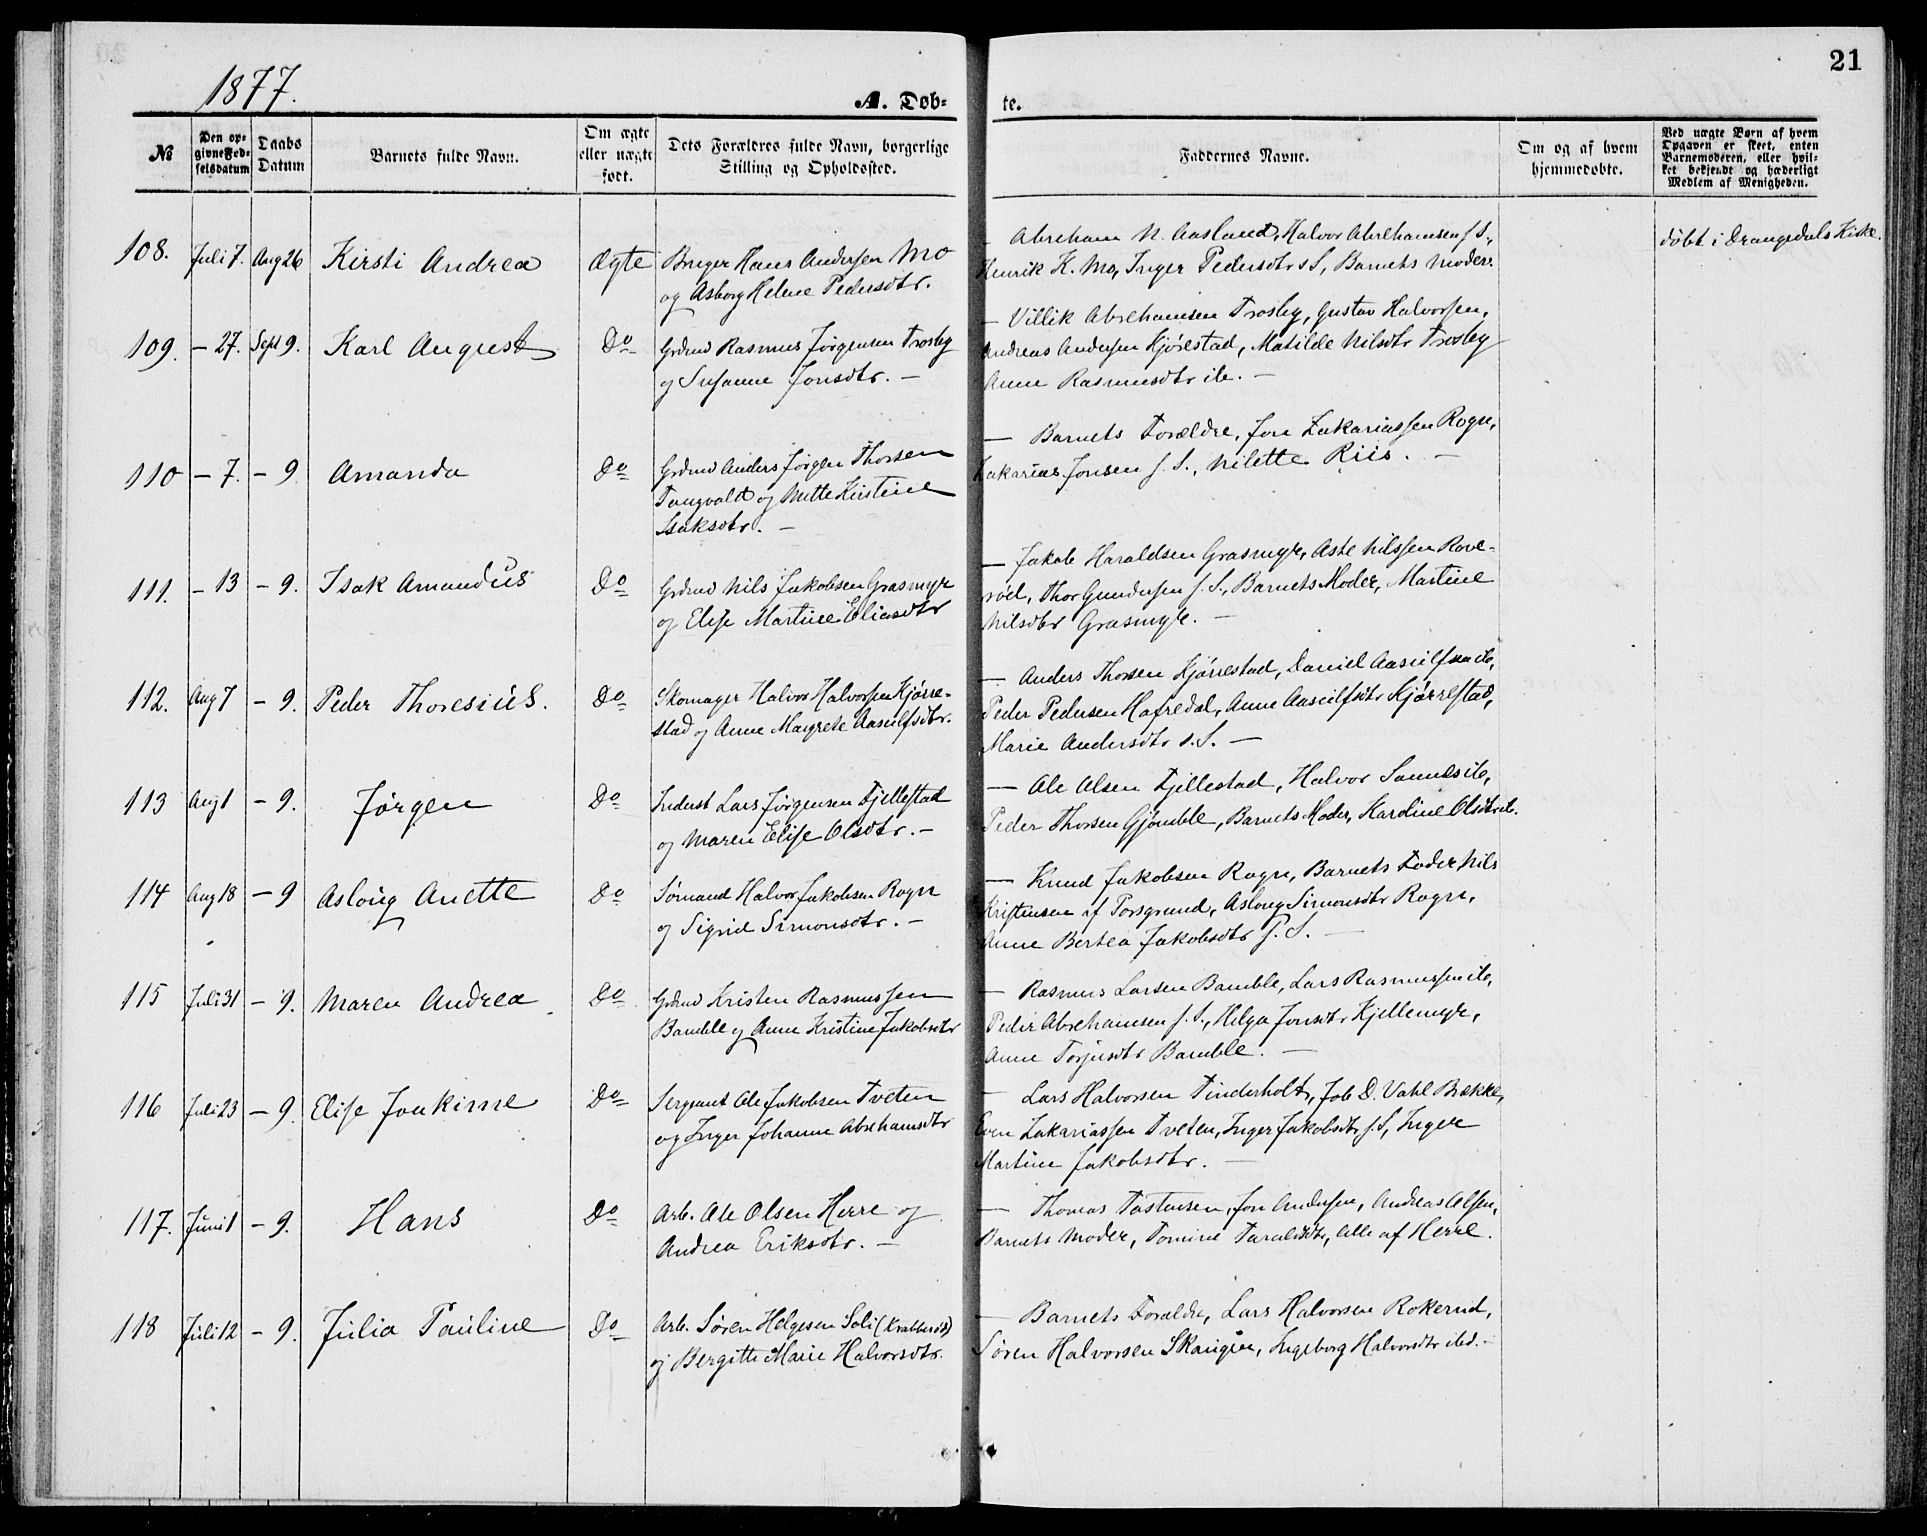 21
1877.
A. Døb-
te.
№
Den op-
givne Fød-
selsdatum
Daabs
Datum
Barnets fulde Navn.
Om ægte
eller uægte
født.
Dets Forældres fulde Navn, borgerlige
Stilling og Opholdssted.
Faddernes Navne.
Om og af hvem
hjemmedøbte.
Ved uægte Børn af hvem
Opgaven er skeet, enten
Barnemoderen, eller hvil-
ket bekjendt og hæderligt
Medlem af Menigheden.
108. Juli 7. Aug 26 Kirsti Andrea Ægte Bruger Hans Andersen Mo
og Asborg Helene Pedersdtr.
— Abreham N. Aasland, Halvor Abrehamsen f S.,
Henrik K. Mo, Inger Pedersdtr s S, Barnets Moder.
døbt i Drangedals Kirke.
109. — 27. Sept 9. Karl August Do Grdmd Rasmus Jørgensen Trosby
og Susanne Jonsdtr. —
— Villik Abrehamsen Trosby, Gustav Halvorsen,
Andreas Andersen Kjørestad, Matilde Nilsdtr Trosby
Anne Rasmusdtr ib. —
110 — 7. — 9. Amanda Do Grdmd Anders Jørgen Thorsen
Tangvald og Mette Kirstine
Isaksdtr. —
— Barnets Forældre, Jon Zakariassen Rogn,
Zakarias Jonsen f. S., Nilette Riis. —
111. — 13 — 9. Isak Amandus Do Grdmd Nils Jakobsen Grasmyr
og Elise Martine Eliasdtr
— Jakob Haraldsen Grasmyr, Aste Nilssen Rove-
rød, Thor Gundersen f. S., Barnets Moder, Martine
Nilsdtr Grasmyr. —
112. Aug 7 — 9. Peder Thoresius. Do Skomager Halvor Halvorsen Kjørre-
stad og Anne Margrete Aasulfsdtr.
— Anders Thorsen Kjørrestad, Daniel Aasulfsen ib,
Peder Pedersen Hafredal, Anne Aasulfsdtr Kjørrestad,
Marie Andersdtr s. S. —
113 Aug 1 — 9. Jørgen Do Inderst Lars Jørgensen Fjellestad
og Maren Elise Olsdtr. —
— Ole Olsen Fjellestad, Halvor ib,
Peder Thorsen Gjømble, Barnets Moder, Karoline Olsdtr ib.
114 Aug 18 — 9 Asloug Anette Do Sømand Halvor Jakobsen Rogn
og Sigrid Simonsdtr. —
— Knud Jakobsen Rogn, Barnets Fader, Nils
Kristensen af Porsgrund, Asloug Simonsdtr Rogn,
Anne Bertea Jakobsdtr f. S. —
115 Juli 31 — 9. Maren Andrea Do Grdmd Kristen Rasmussen
Bamble og Anne Kristine Jakobsdtr
— Rasmus Larsen Bamble, Lars Rasmussen ib,
Peder Abrehamsen f. S., Helga Jonsdtr Kjellemyr,
Anne Torjusdtr Bamble. —
116 Juli 23 — 9. Elise Joakime Do Sergeant Ole Jakobsen Tveten
og Inger Johanne Abrehamsdtr
— Lars Halvorsen Finderholt, Job D. Vahl Bække,
Even Zakariassen Tveten, Inger Jakobsdtr f. S, Inger
Martine Jakobsdtr. —
117. Juni 1 — 9. Hans Do Arb. Ole Olsen Herre og
Andrea Eriksdtr. —
— Thomas Tostensen, Jon Andersen, Andreas Olsen,
Barnets Moder, Tomine Taraldsdtr, Alle af Herre.
118 Juli 12 — 9. Julia Pauline Do Arb. Søren Helgesen Soli (Krabberød)
og Bergitte Marie Halvorsdtr.
— Barnets Forældre, Lars Halvorsen Rokerud,
Søren Halvorsen Skangen, Ingeborg Halvorsdtr ibd. —